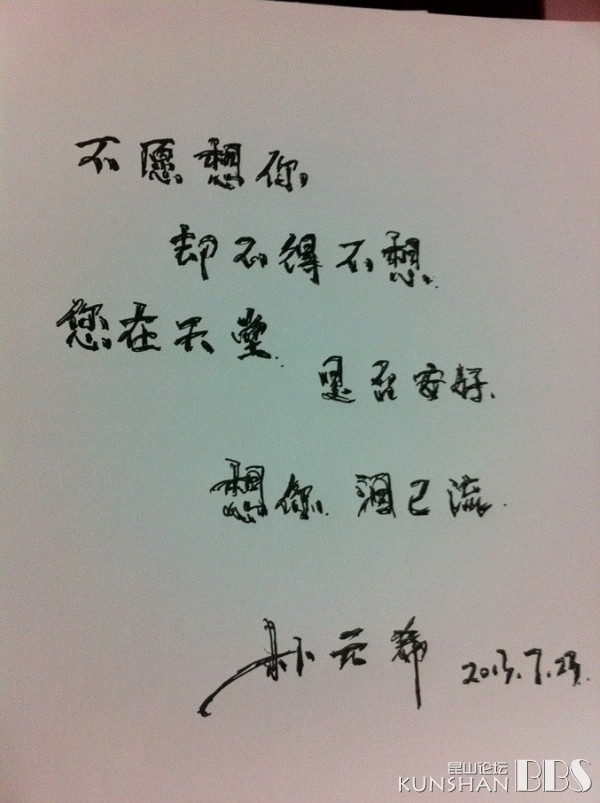 不愿想你
却不得不想
您在天堂
是否安好
想你 泪已流
2013.7.23
昆山论坛
KUNSHAN BBS